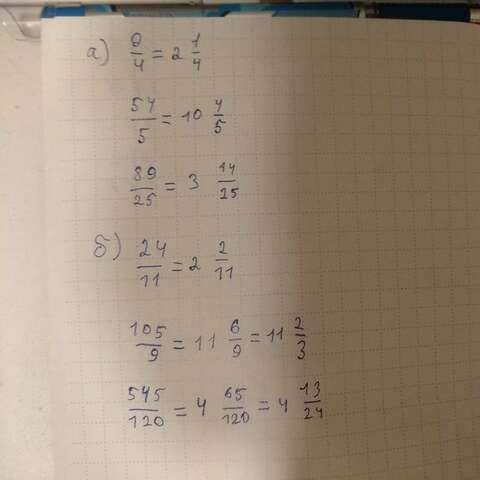 а) 9/4 = 2 1/4
54/5 = 10 4/5
89/25 = 3 14/25
б) 24/11 = 2 2/11
105/9 = 11 6/9 = 11 2/3
545/120 = 4 65/120 = 4 13/24